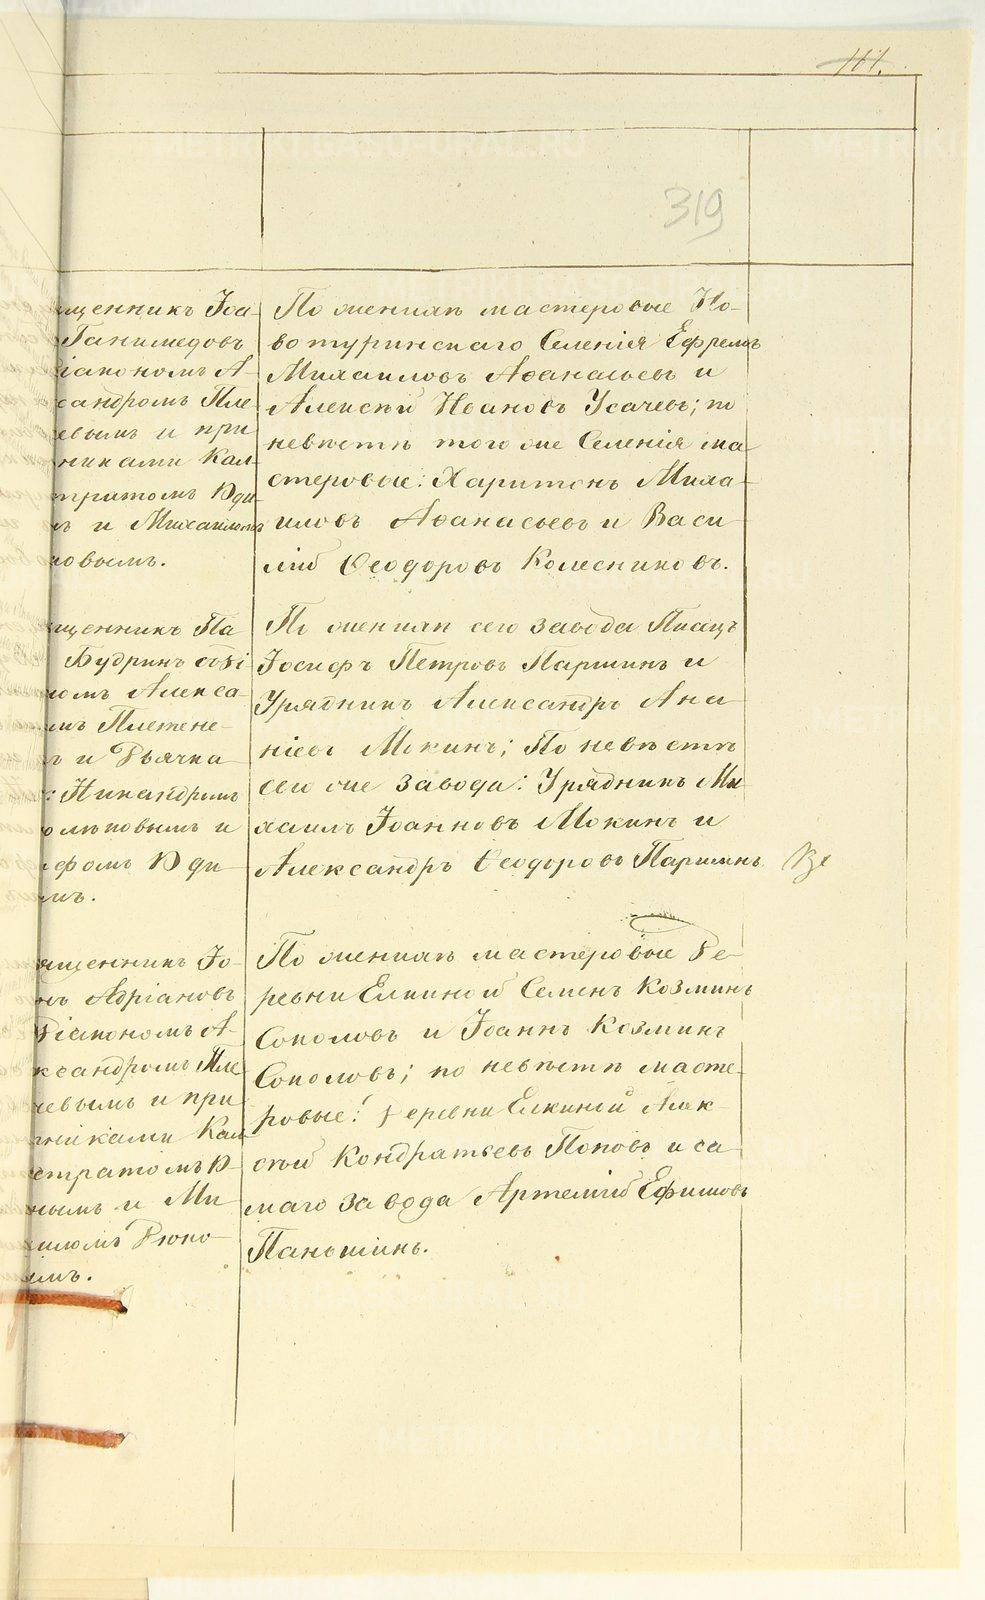 111.
319
щенникъ Іоа-
Ганимедовъ
діакономъ А-
сандромъ Пле-
евымъ и при
никами Кал-
тратомъ Юди-
ъ и Михаиломъ
ковымъ.
По женихѣ мастеровые Но-
вотуринскаго Селенія Ефремъ
Михаиловъ Аѳанасьевъ и
Алексѣй Ивановъ Усачевъ; по
невѣстѣ того же Селенія ма-
стеровые: Харитонъ Миха-
иловъ Аѳанасьевъ и Васи-
лій Ѳеодоровъ Колесниковъ.
щенникъ Па
Будринъ собі
номъ Алекса-
мъ Плетене-
ъ и Дьячка
: Никандромъ
олѣповымъ и
фомъ Юди-
мъ.
По женихѣ сего завода Писецъ
Іосифъ Петровъ Паршинъ и
Урядникъ Александръ Ана-
ніевъ Мокинъ; По невѣстѣ
сего же завода: Урядникъ Ми-
хаилъ Іоанновъ Мокинъ и
Александръ Ѳеодоровъ Паршинъ
ященникъ Іо-
нъ Адріановъ
діакономъ А-
ксандромъ Пле
невымъ и при
тниками Кал
стратомъ Ю-
нымъ и Ми
иломъ Рюко-
ымъ.
По женихѣ мастеровые де-
ревни Елкиной Семенъ Козминъ
Соколовъ и Іоаннъ Козминъ
Соколовъ; по невѣстѣ масте-
ровые: деревни Елкиной Алек-
сѣй Кондратьевъ Поповъ и са-
маго завода Артемій Ефимовъ
Паньшинъ.